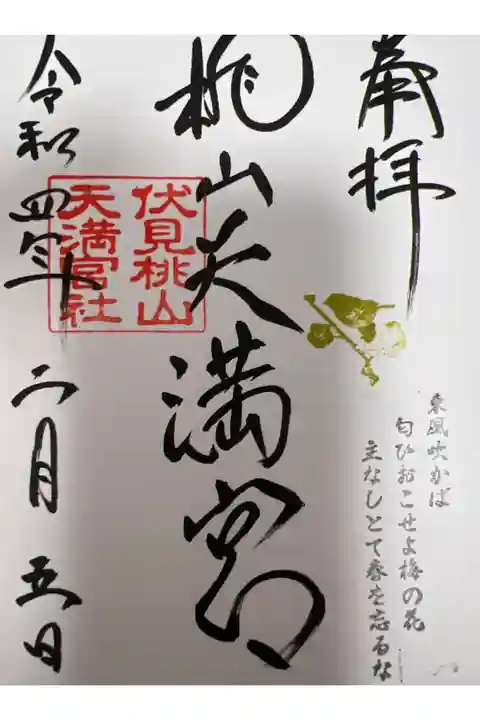 奉拝
東風吹かば
匂ひおこせよ梅の花
主なしとて春を忘るな
桃山天満宮
伏見桃山
天満宮社
令和四年二月五日